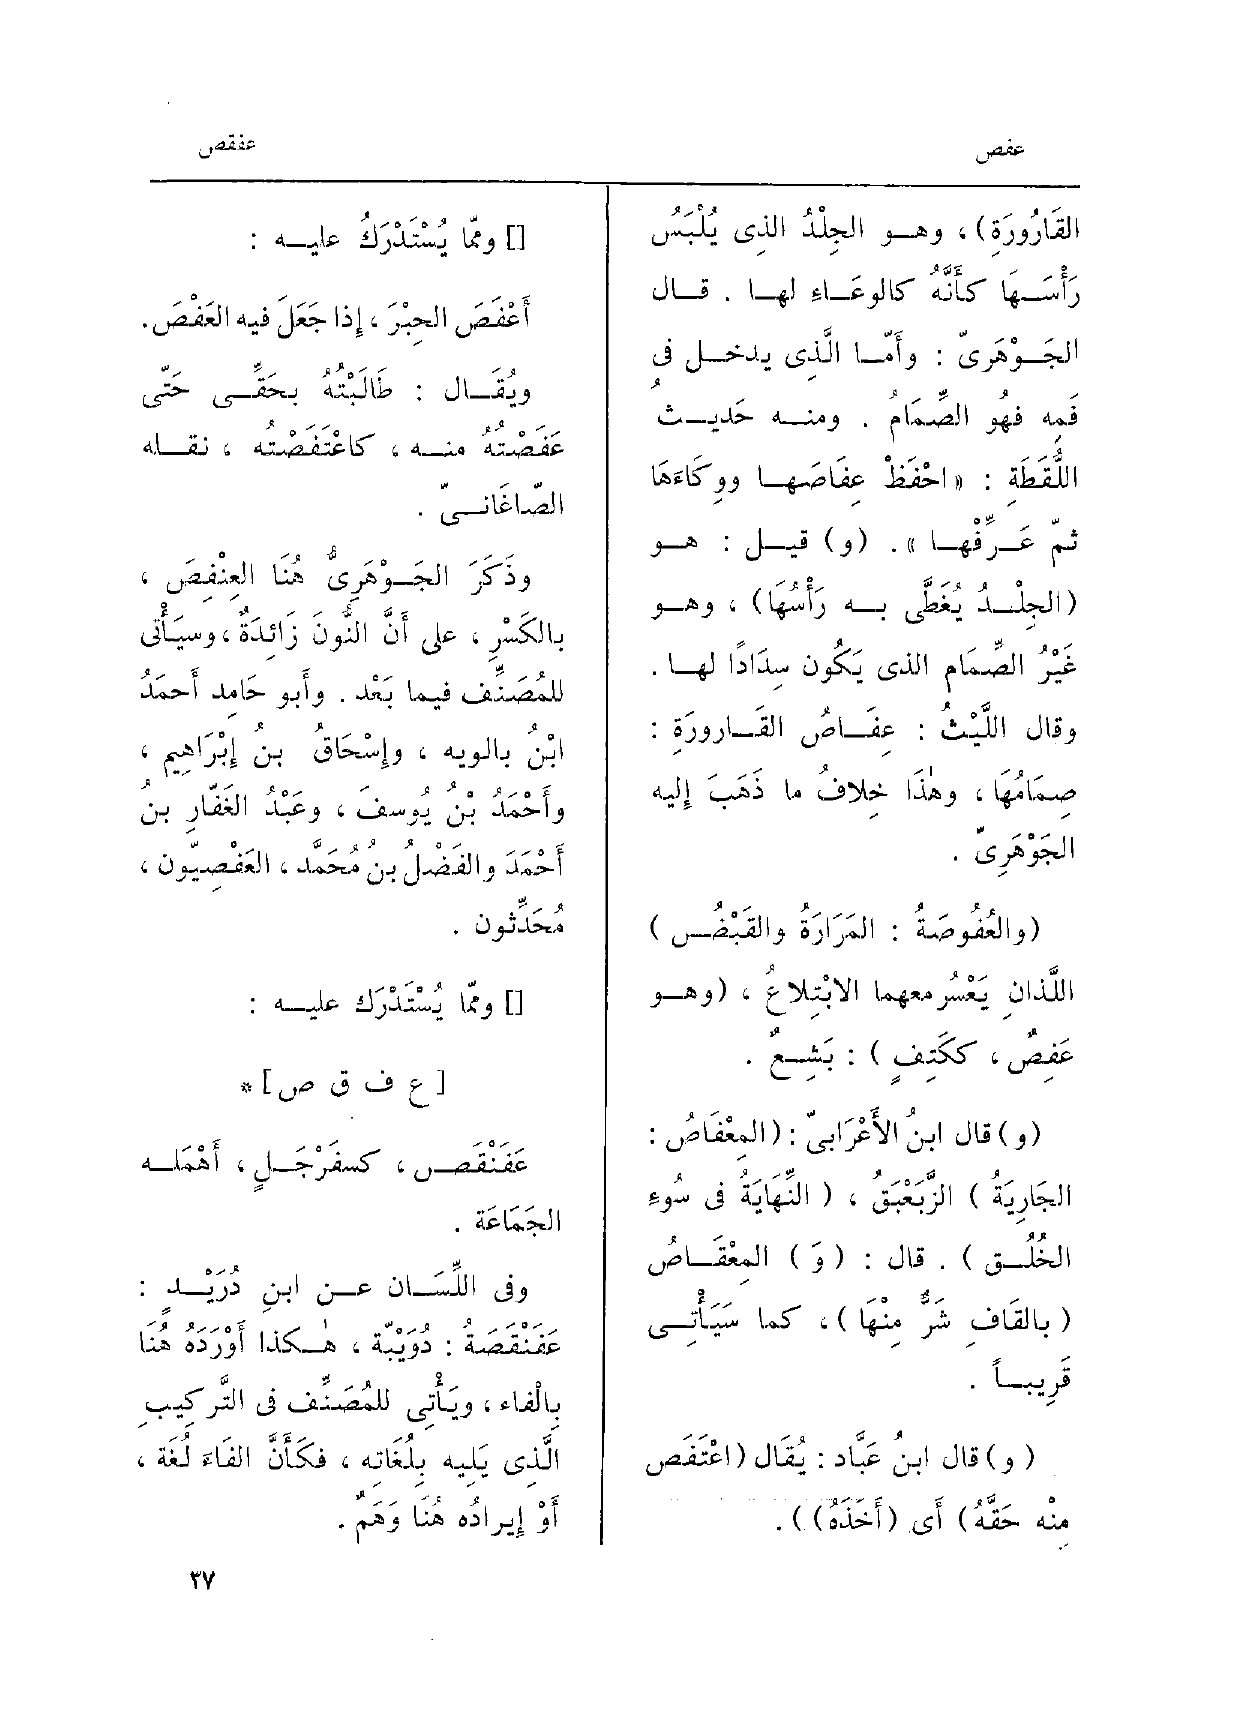 عفص
عفقص
القَارُورَةِ) ، وهــو الجِلْدُ الذِى يُلْبَسُ
رَأْســها كَأَنَّهُ كالوِعَــاءِ لهــا . قــال
الجَــوْهَرِىّ : وأَمّــا الَّذِى يدخــل فى
فمه فهو الصِّمَامُ . ومنــه حَدِيــثُ
اللُّقَطَةِ : « احْفَظْ عِفَاصَهــا ووِكَاءَهَا
ثمّ عَــرِّفْهــا » . (و) قيــل : هــو
(الجِلْــدُ يُغَطَّى بــه رَأْسُها) ، وهــو
غَيْرُ الصِّمَامِ الذى يَكُون سِدَادًا لهــا .
وقال اللَّيْثُ : عِفَــاصُ القَــارورَةِ :
صِمَامُهَا ، وهٰذَا خِلافُ ما ذَهَبَ إِليه
الجَوْهَرِىّ .
(والعُفُوصَةُ : المَرَارَةُ والقَبْضُــ )
اللَّذانِ يَعْسُر معهما الابْتِلاعُ ، (وهــو
عَفِصٌ ، ككَتِفٍ ) : بَشِــعٌ .
(و) قال ابنُ الأَعْرَابىّ : (المِعْفَاصُ :
الجَارِيَةُ ) الزَّبَعْبَق ، ( النِّهَايَةُ فى سُوءِ
الخُلُــق ) . قال : ( وَ ) المِعْقَــاصُ
( بالقَافِ شَرٌّ مِنْهَا ) ، كما سَيَأْتِــى
قَرِيبــاً .
( و ) قال ابنُ عَبَّاد : يُقَال ( اعْتَفَصَ
مِنْه حَقَّهُ ) أَى (أَخَذَهُ) ) .
[] وممّا يُسْتَدْرَكُ عليــه :
أَعْفَصَ الحِبْرَ ، إِذا جَعَلَ فيه العَفْصَ .
ويُقَــال : طَالَبْتُهُ بحَقِّــى حَتَّى
عَفَصْتُهُ منــه ، كاعْتَفَصْتُه ، نقــله
الصّاغَانــىّ .
وذَكَرَ الجَــوْهَرِىُّ هُنَا العِنْفِصَ ،
بالكَسْرِ ، على أَنَّ النُّونَ زَائِدَةٌ ، وسيَأْتى
للمُصَنِّفِ فيما بَعْد . وأَبو حَامِد أَحمَدُ
ابْنُ بالويه ، وإِسْحَاقُ بنُ إِبْرَاهِيم ،
وأَحْمَدُ بْنُ يوسفَ ، وعَبْدُ الغَفّارِ بنُ
أَحْمَدَ والفَضْلُ بنُ مُحَمَّد ، العَفْصِيّون ،
مُحَدِّثُون .
[] وممّا يُسْتَدْرَك عليــه :
[ ع ف ق ص ] *
عَفَنْقَصــ ، كسفَرْجَــلٍ ، أَهْمَلــه
الجَمَاعَة .
وفى اللِّسَــان عــن ابنِ دُرَيْــدٍ :
عَفَنْقَصَةُ : دُوَيْبّة ، هٰــكذا أَوْرَدَهُ هُنَا
بِالْفَاء ، ويَأْتِى للمُصَنِّف فى التَّركِيبِ
الَّذِى يَلِيه بِلُغَاتِه ، فكَأَنَّ الفَاءَ لُغَة ،
أَوْ إِيرادُه هُنَا وَهَمٌ .
٣٧